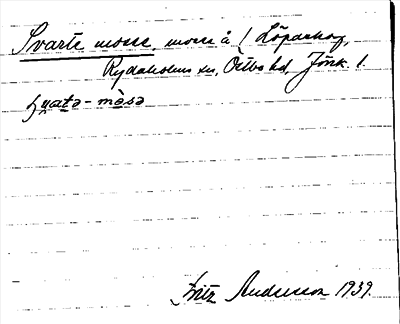 Svarte mosse, mosse å 1 Löparhog,
Rydaholms sn, Östbo hd, Jönk. l.
svatə-måsə
Fritz Andersson 1939.